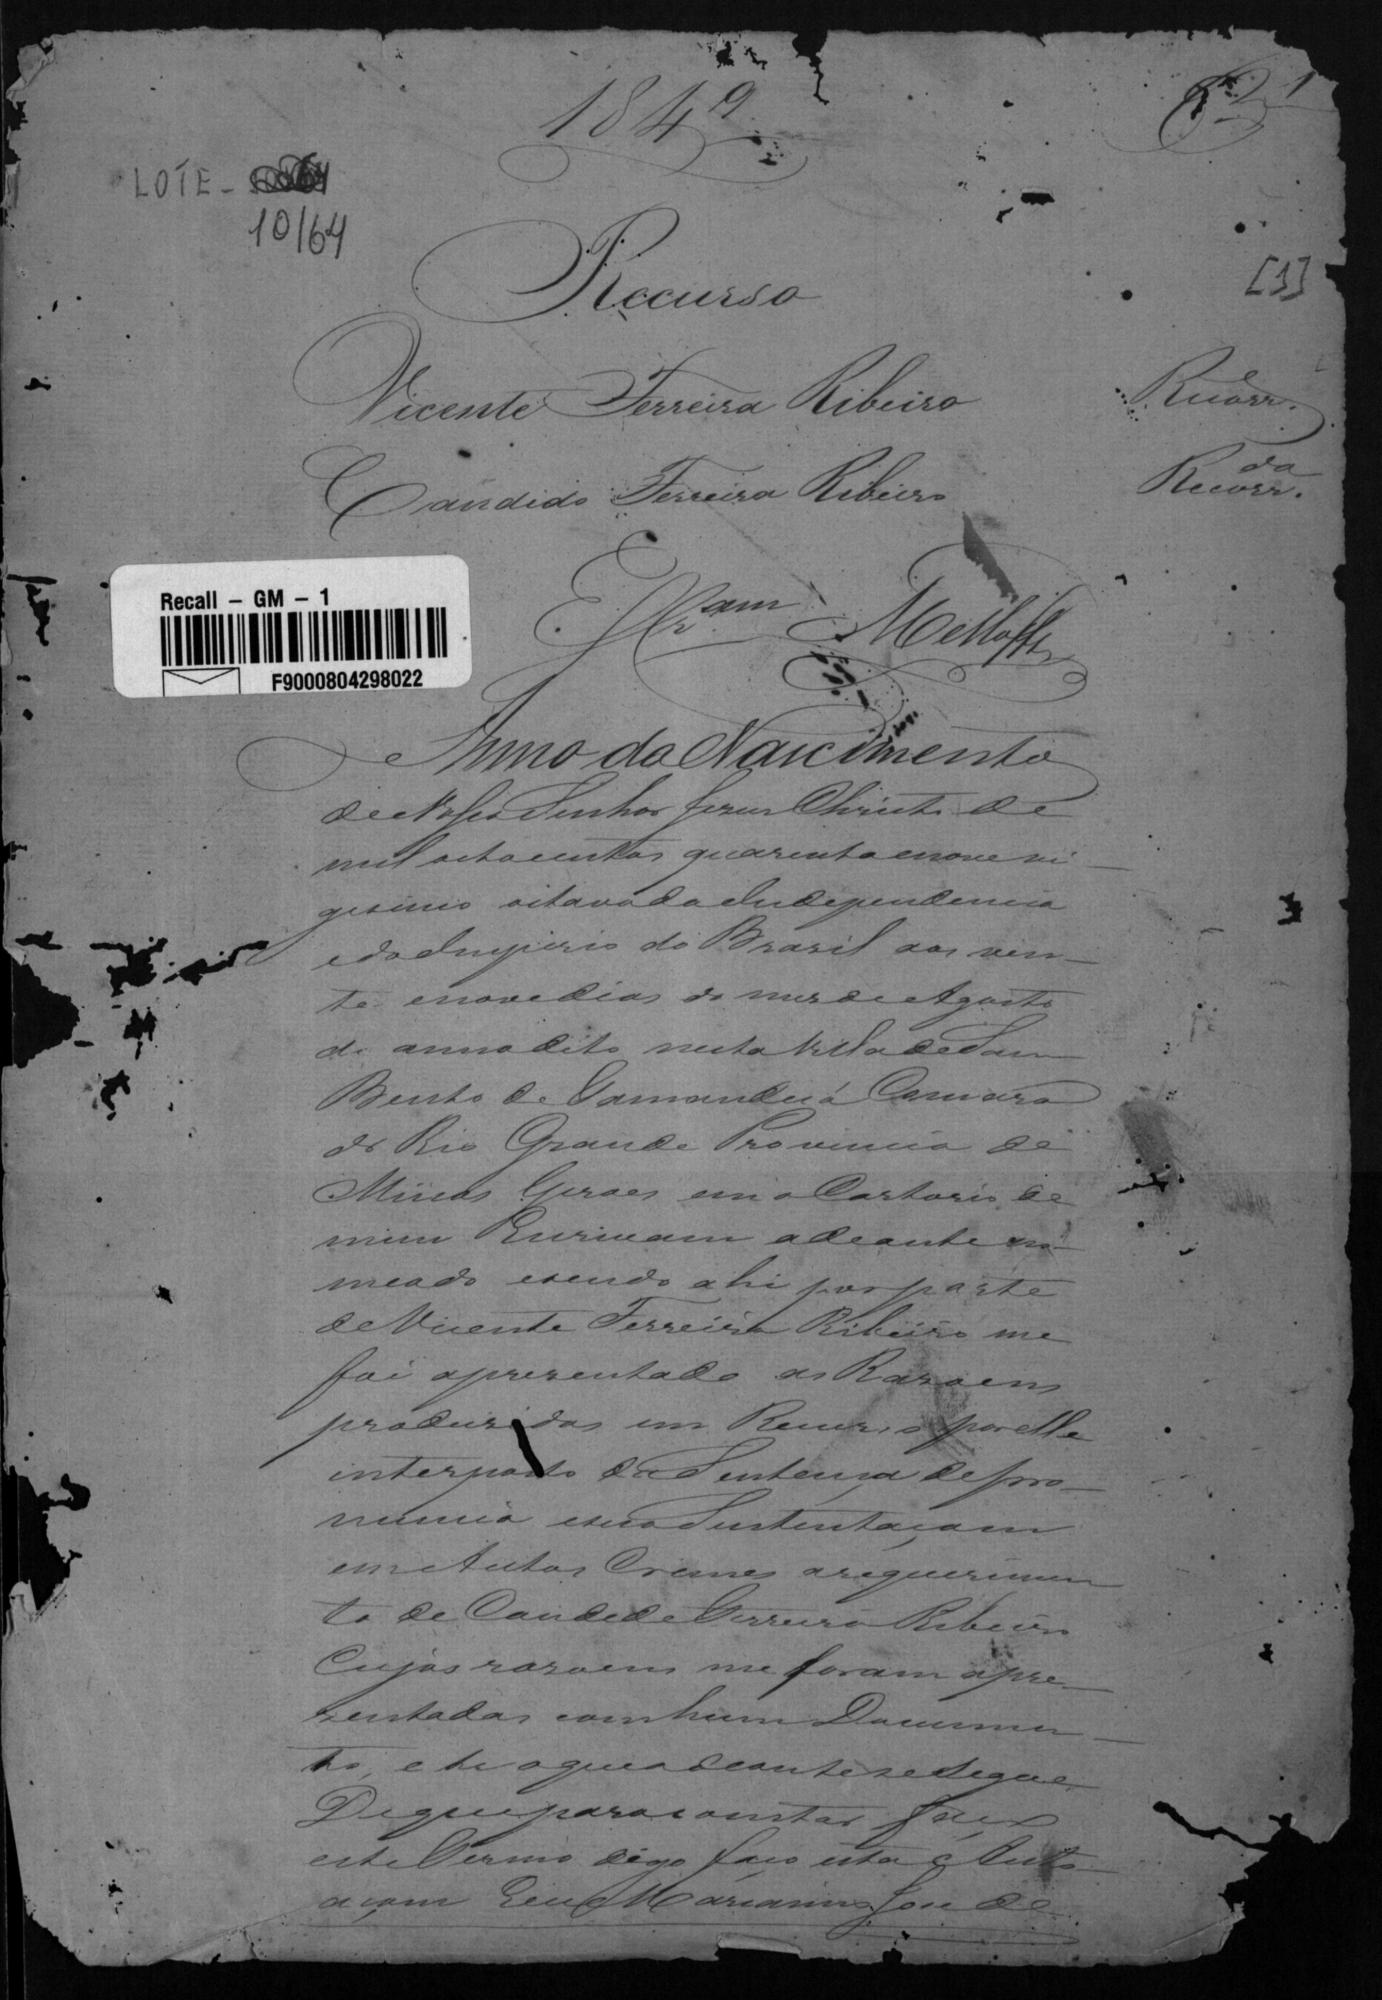 1849
LOTE - 
10/64
[1]
Recurso
Vicente Ferreira Ribeiro Recorr.e
Candido Ferreira Ribeiro Recorr.do
Recall - GM - 1
F9000804298022
Anno do Nascimento
de Nosso Senhor Jesus Christo de
mil oitocentos quarenta e nove vi-
gesimo oitavo da Independencia
e do Imperio do Brasil aos vin-
te e nove dias do mes de Agosto
do anno dito nesta Villa de Sam
Bento de Tamanduá Comarca
do Rio Grande Provincia de
Minas Geraes em o Cartorio de
mim Escrivam adeante no
meado e sendo ahi por parte
de Vicente Ferreira Ribeiro me
foi apresentado as Razoens
produzidas em Recurso por elle
interposto da Sentença de pro-
nuncia e sua Sustentaçam
em Autos Crimes a requerimen
to de Candido Ferreira Ribeiro
Cujas razoens me foram apre-
zentadas com hum Documen-
to, e he o que adeante se segue
De que para constar faço
este Termo digo faço esta Auto-
açam Eu Marianno José de